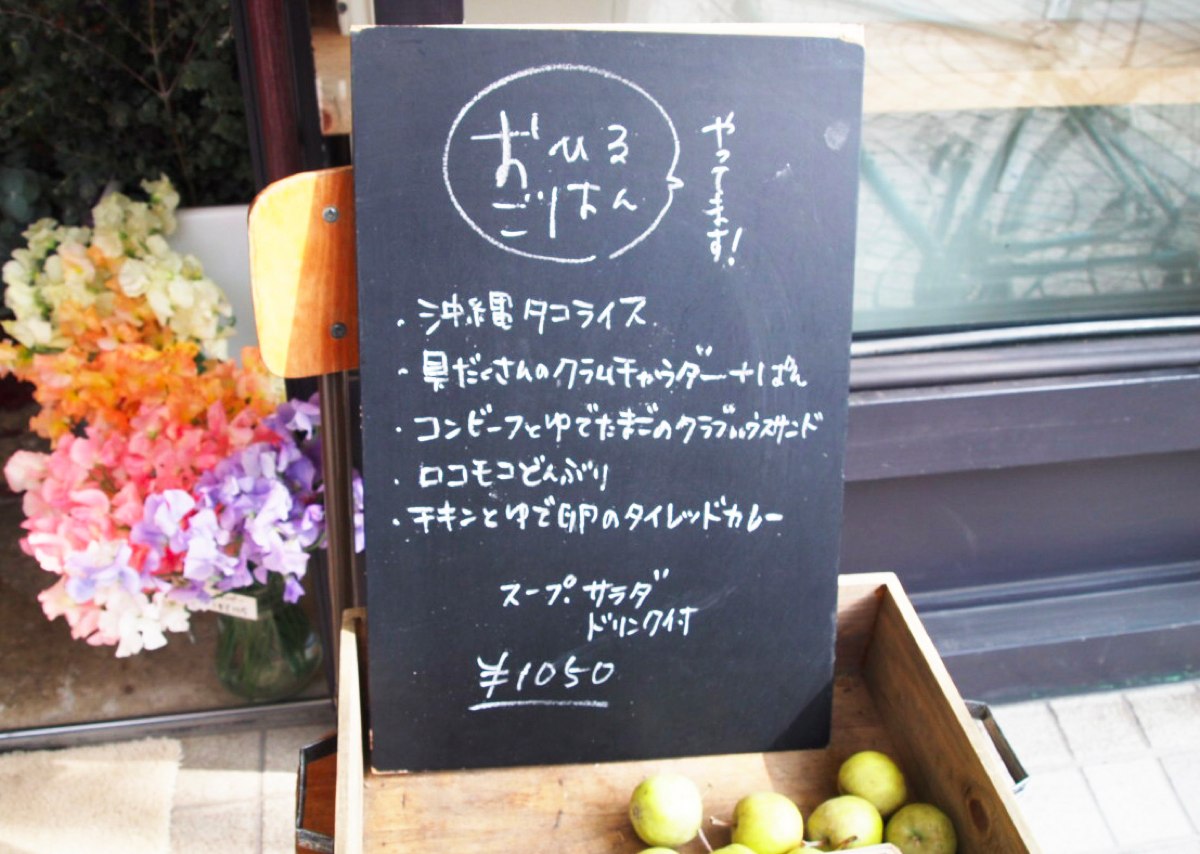 おひる
ごはん
やってます!
・沖縄タコライス
・具だくさんのクラムチャウダー+ぱん
・コンビーフとゆでたまごのクラブハウスサンド
・ロコモコどんぶり
・チキンとゆで卵のタイレッドカレー
スープ・サラダ
ドリンク付
¥1050